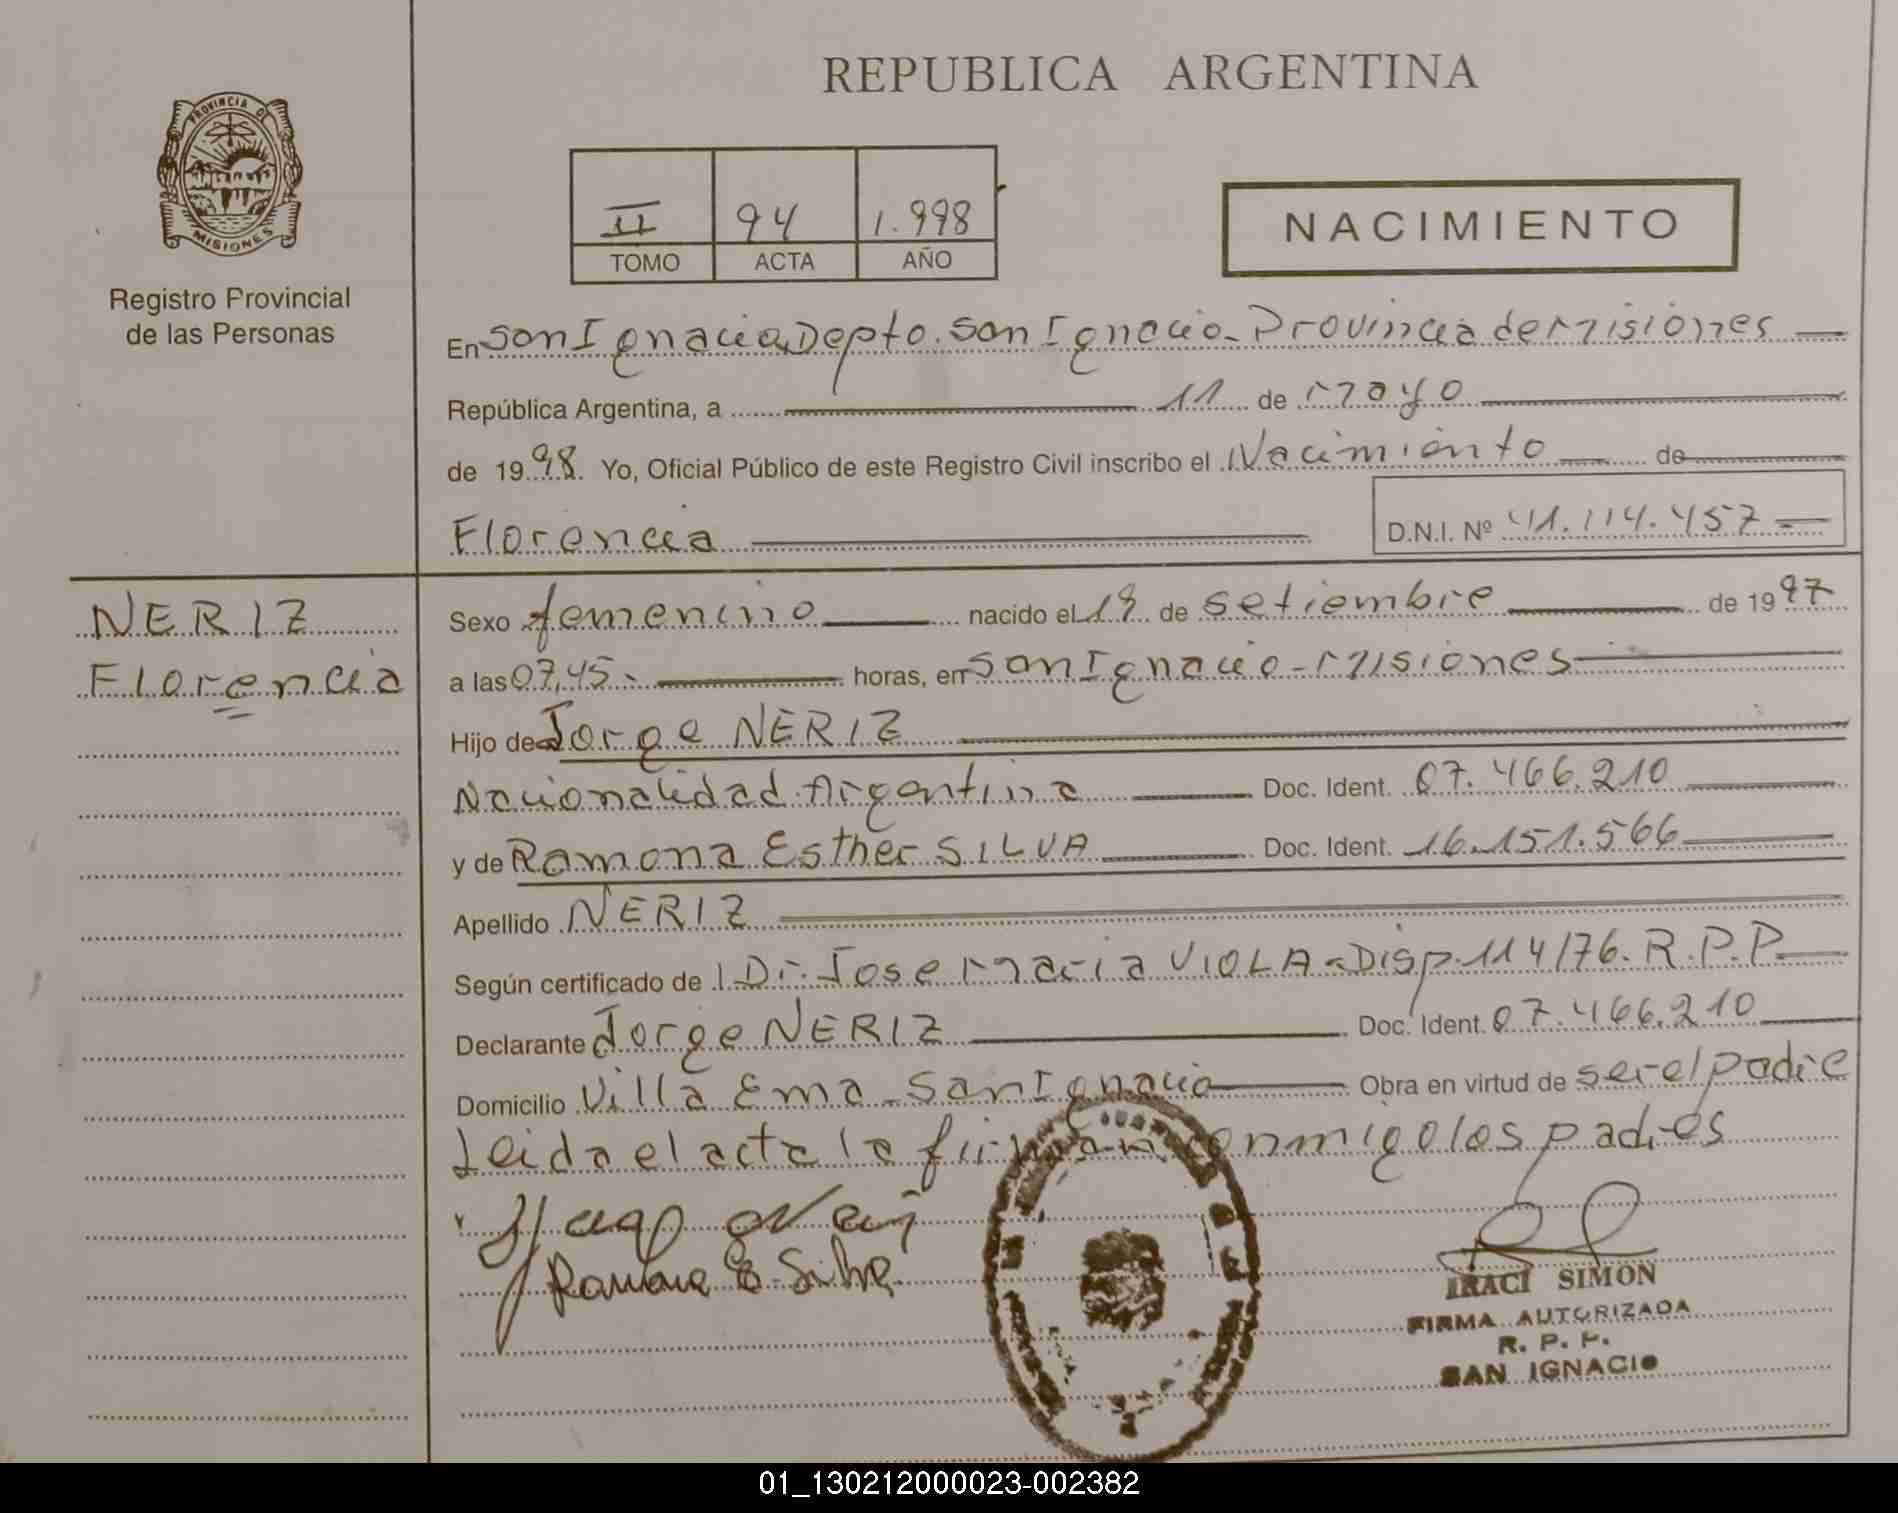 REPUBLICA ARGENTINA
PROVINCIA DE
MISIONES
Registro Provincial
de las Personas
II 94 1.998
TOMO ACTA AÑO
NACIMIENTO
En San Ignacio, Depto. San Ignacio - Provincia de misiones
República Argentina, a 11 de mayo
de 1998. Yo, Oficial Público de este Registro Civil inscribo el Nacimiento de
Florencia D.N.I. Nº 41.114.457
NERIZ
Florencia
Sexo femenino nacido el 18 de setiembre de 1997
a las 07,45 - horas, en San Ignacio - misiones
Hijo de Jorge NERIZ
Nacionalidad Argentina Doc. Ident. 07.466.210
y de Ramona Esther SILVA Doc. Ident. 16.151.566
Apellido NERIZ
Según certificado de Dr. Jose maria VIOLA - Disp. 114/76. R.P.P.
Declarante Jorge NERIZ Doc. Ident. 07.466.210
Domicilio Villa Ema - San Ignacio Obra en virtud de ser el padre
Leida el acta la firman conmigo los padres
Ramona E. Silva
IRACI SIMON
FIRMA AUTORIZADA
R. P. P.
SAN IGNACIO
01_130212000023-002382